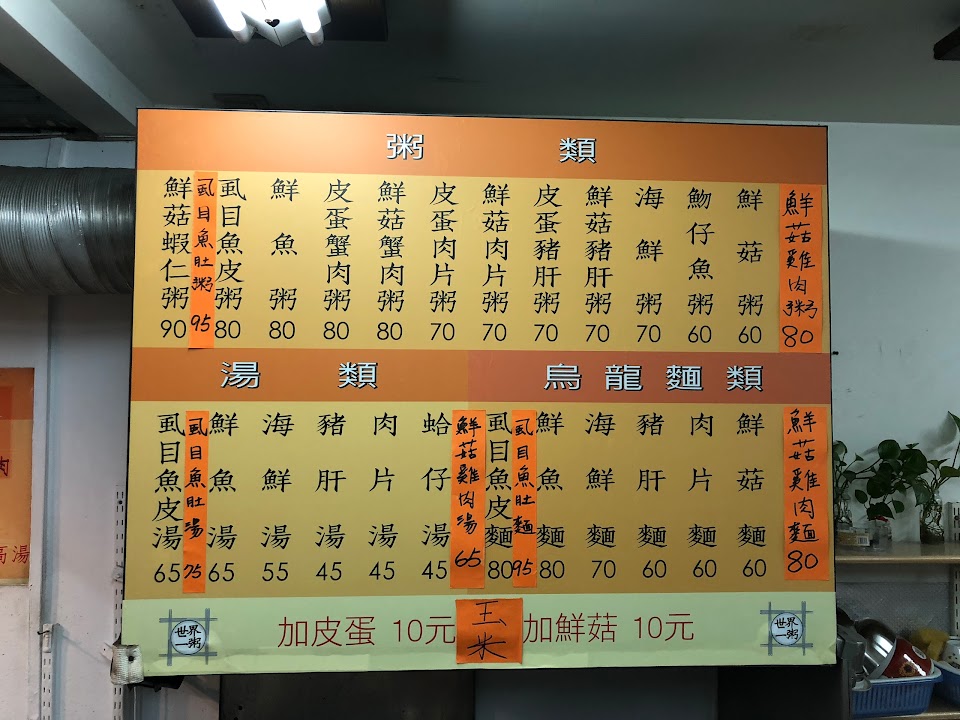 粥類
鮮菇雞肉粥 80
鮮菇粥 60
魩仔魚粥 60
海鮮粥 70
鮮菇豬肝粥 70
皮蛋豬肝粥 70
鮮菇肉片粥 70
皮蛋肉片粥 70
鮮菇蟹肉粥 80
皮蛋蟹肉粥 80
鮮魚粥 80
虱目魚皮粥 80
虱目魚肚粥 95
鮮菇蝦仁粥 90
烏龍麵類
鮮菇雞肉麵 80
鮮菇麵 60
肉片麵 60
豬肝麵 60
海鮮麵 70
鮮魚麵 80
虱目魚肚麵 95
虱目魚皮麵 80
湯類
鮮菇雞肉湯 65
蛤仔湯 45
肉片湯 45
豬肝湯 45
海鮮湯 55
鮮魚湯 65
虱目魚肚湯 75
虱目魚皮湯 65
世界一粥
加皮蛋 10元
玉米
加鮮菇 10元
世界一粥
肉
湯